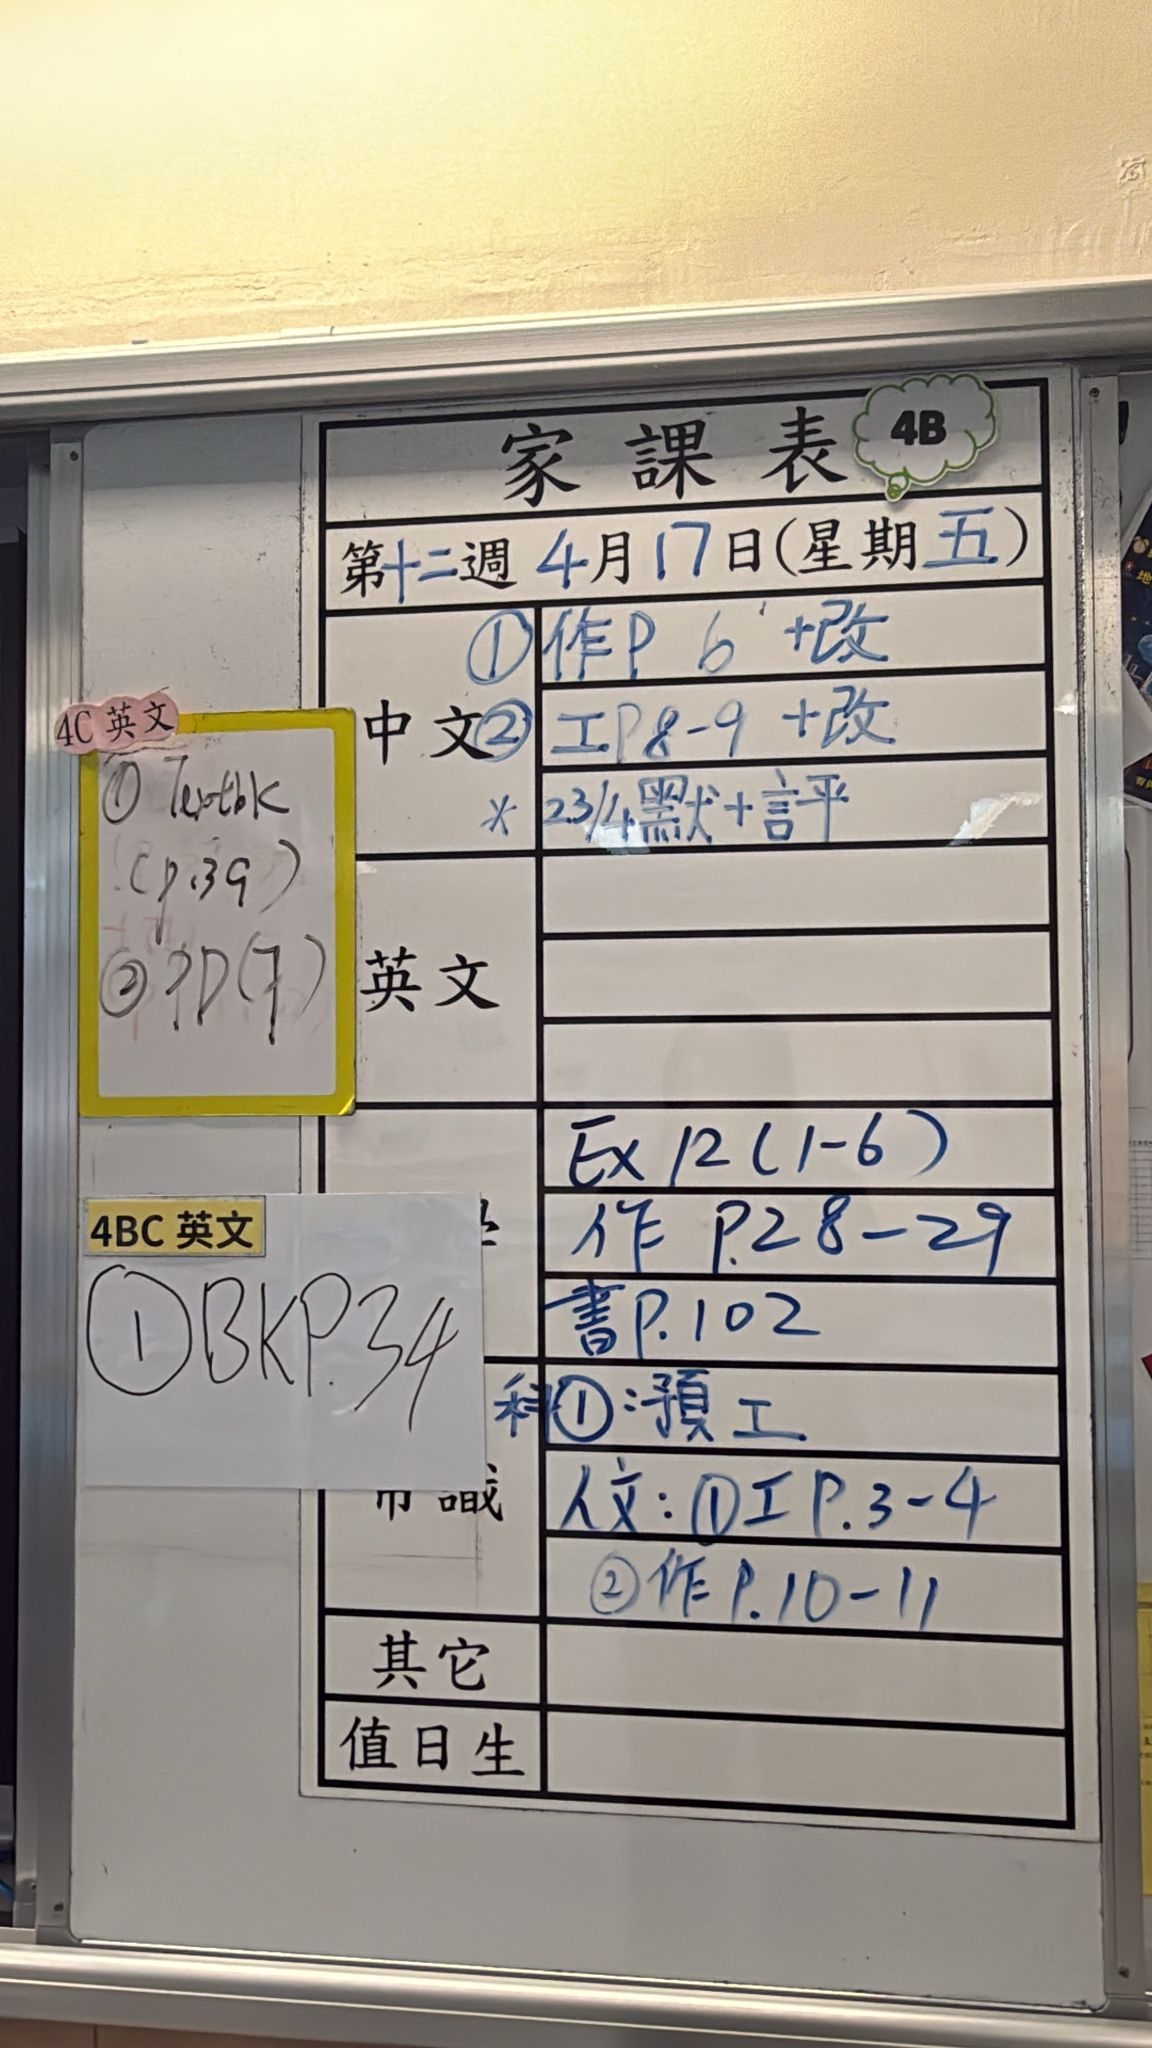 家課表 4B
第十二週 4月17日(星期五)
中文
① 作P. 6 +改
② 工P8-9 +改
* 23/4默+評
英文
4C 英文
① Textbk
(p.39)
② PD(7)
4BC 英文
① BKP.34
Ex 12 (1-6)
作 P.28-29
書P.102
常識
科①:預工
人文:①工P.3-4
②作P.10-11
其它
值日生